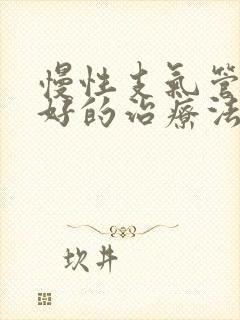 慢性支氣管
好的治療法
坎井